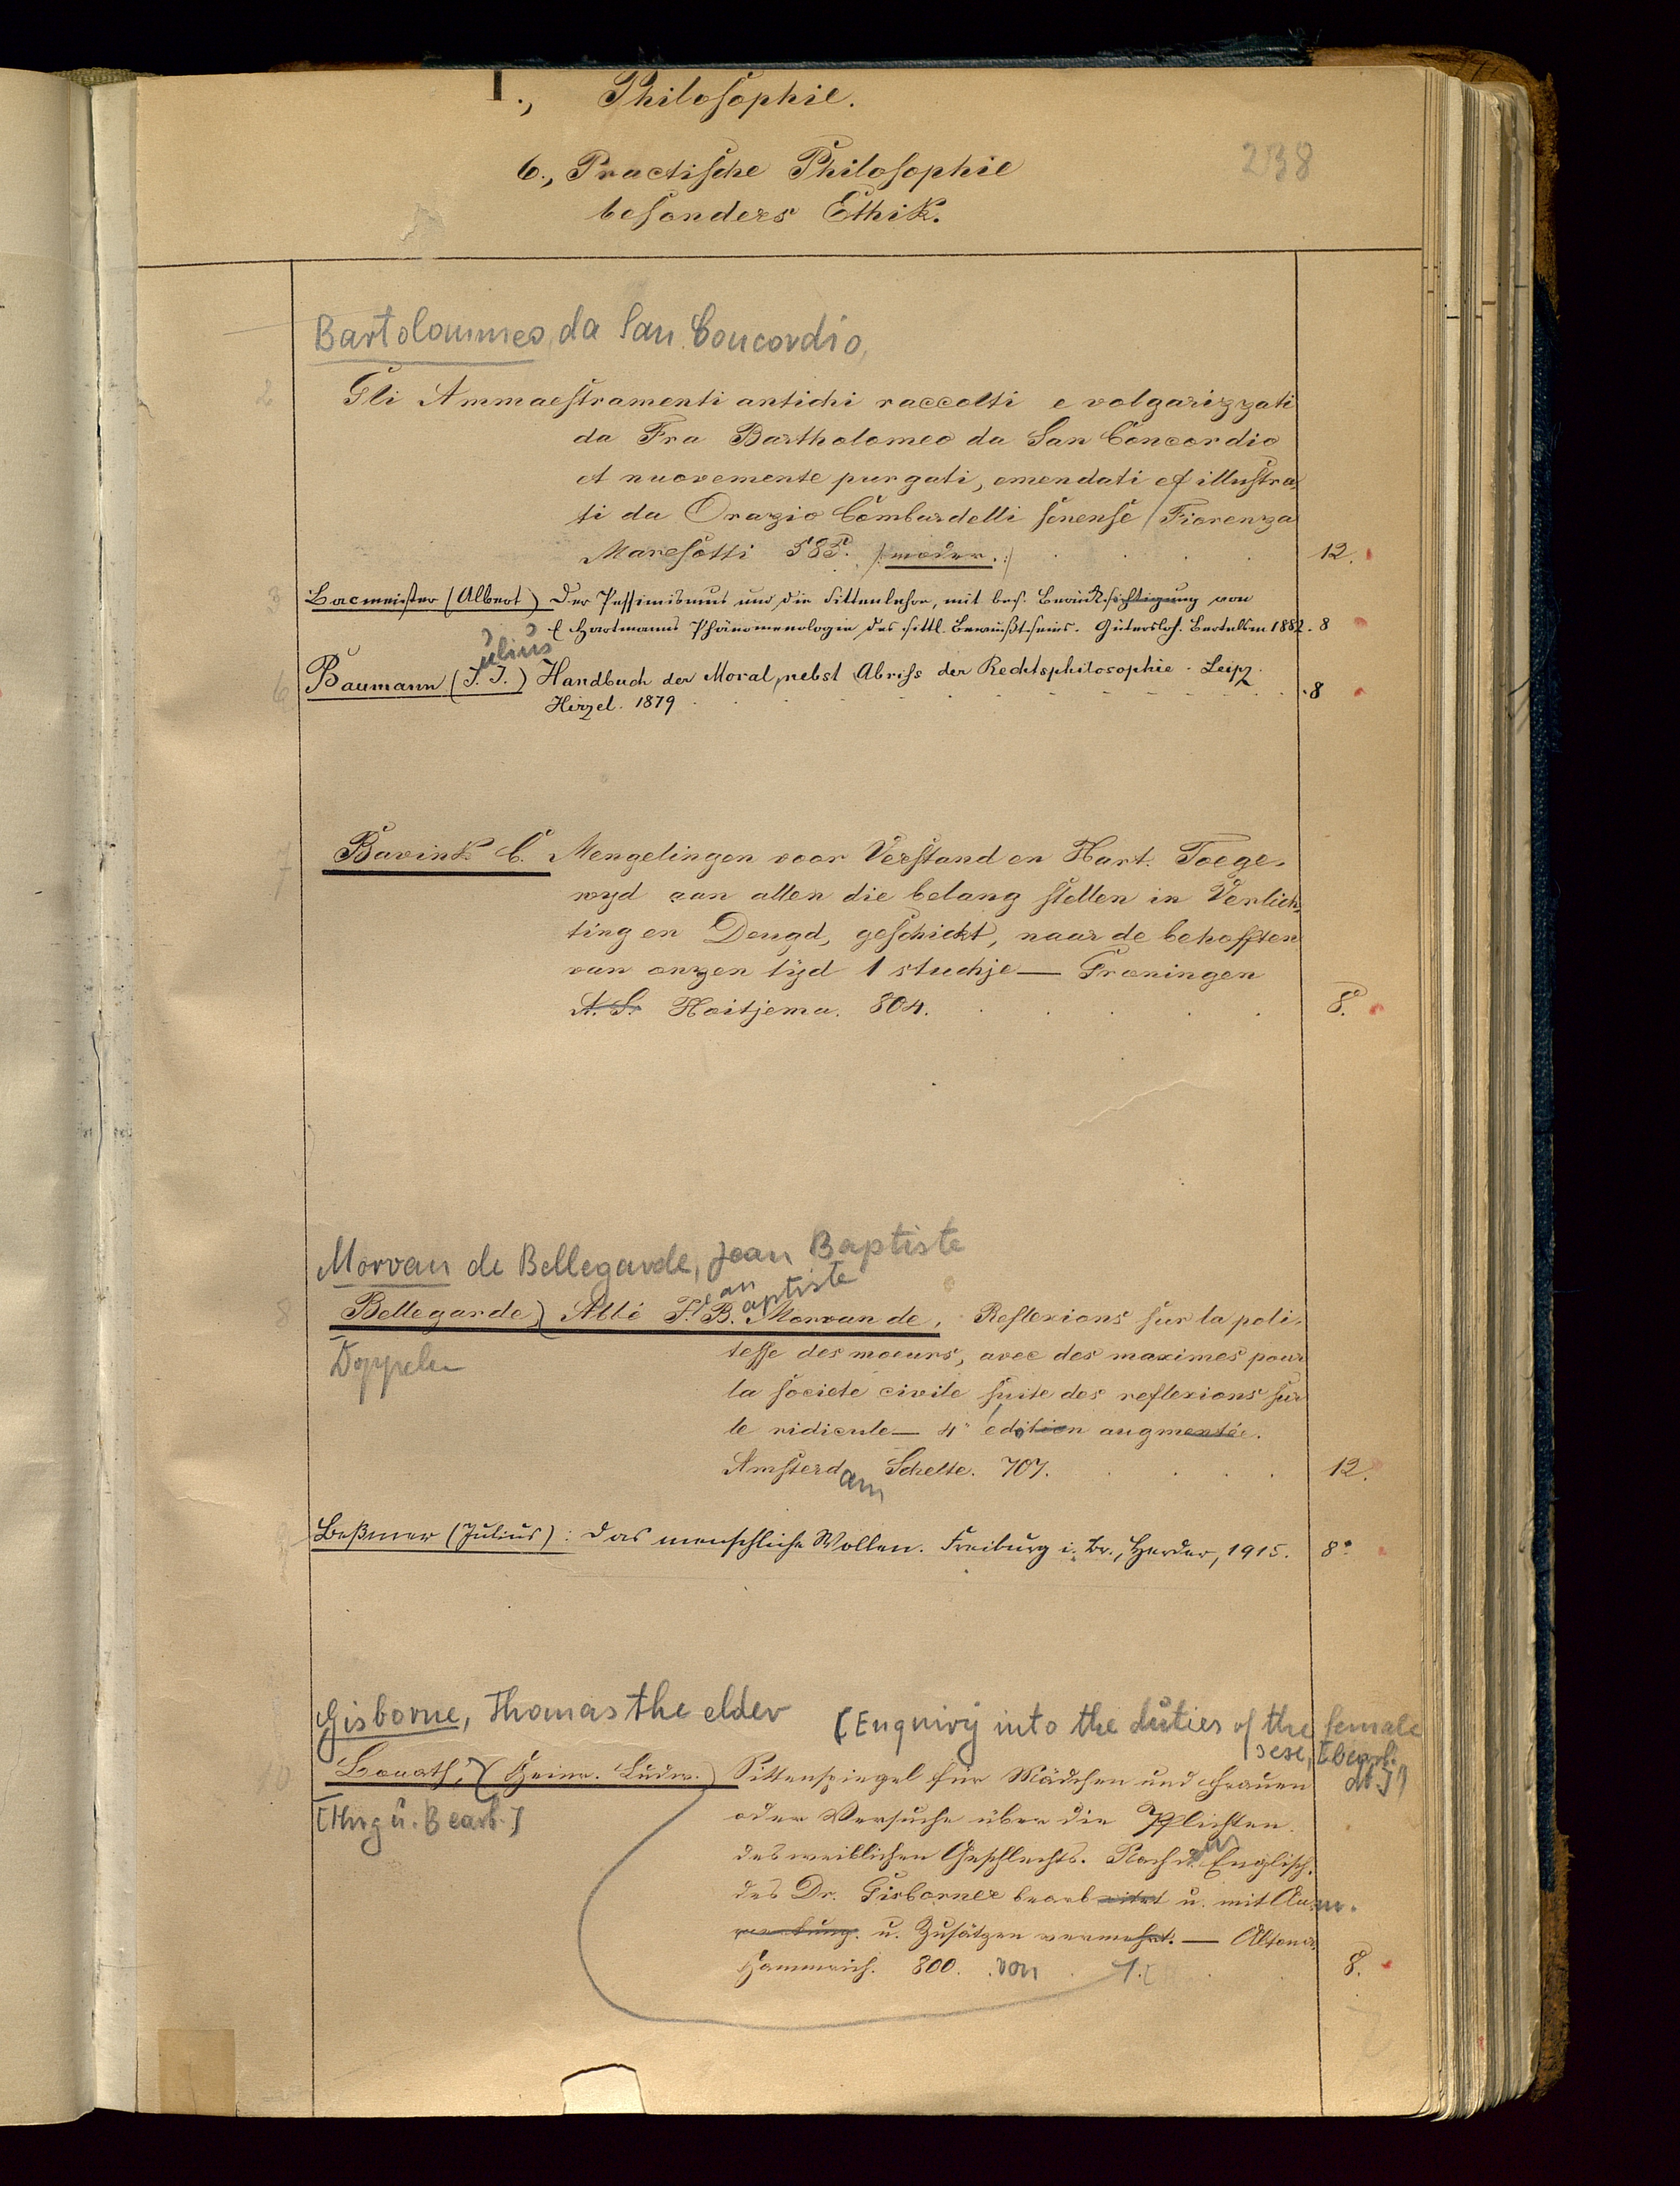 I., Philosophie.
238
6., Practische Philosophie
besonders Ethik.
Bartolommeo, da San Concordio,
2 Gli Ammaestramenti antichi raccolti e volgarizzati
da Fra Bartholomeo da San Concordio
et nuovemente purgati, emendati et illustra-
ti da Orazio Lombardelli senense / Fiorenza
Maresotti 585. /: moder. :/ 12.
3 Bacmeister (Albert) Der Pessimismus und die Sittenlehre, mit bes. Berücksichtigung von
E Hartmanns Phänomenologie des sittl. Bewußtseins. Gütersloh. Bertelsm 1882. 8
ulius
6 Baumann (J. J.) Handbuch der Moral, nebst Abriss der Rechtsphilosophie. Leipz.
Hirzel. 1879 . 8
7 Bavink C. Mengelingen voor Verstand en Hart. Toege-
wyd aan allen die belang stellen in Verlich-
ting en Deugd, geschickt, naar de behoften
van onzen tijd 1 stuckje — Groningen
A. S. Hoitjema. 804. 8.
Morvan de Bellegarde, Jean Baptiste
ean aptiste
8 Bellegarde) Abbé J. B. Morvan de, Reflexions sur la poli-
Doppelex
tesse des moeurs, avec des maximes pour
la societé civile suite des reflexions sur
le ridicule — 4e edition augmentée.
Amsterdam Schelte. 707. 12.
9 Beßmer (Julius): Das menschliche Wollen. Freiburg i. Br., Herder, 1915. 8°
Gisborne, Thomas the elder [Enquiry into the duties of the female
sexe, [bearb.
dt.])
10 (Heinr. Ludw.) Sittenspiegel für Mädchen und Frauen
[Hrsg u. Bearb.]
oder Versuche über die Pflichten
des weiblichen Geschlechts. Nach d. Englisch.
des Dr. Gisbornes bearbeitet u. mit Anm.
merkung. u. Zusätzen vermehrt. — Altona.
Hammerich. 800. von 1. 8.